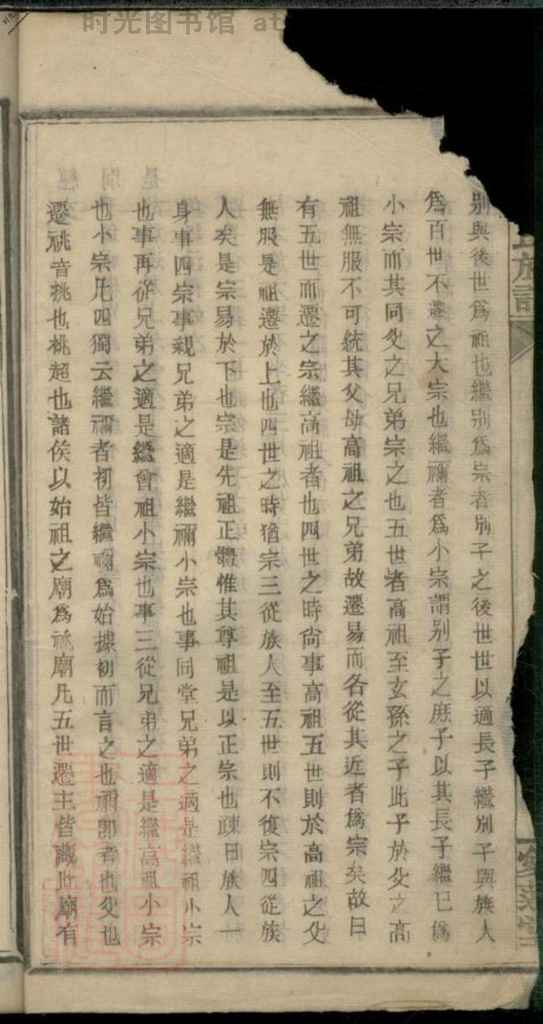 时光图书馆
別與後世爲祖也繼別爲宗者別子之後世世以適長子繼別子與族人
爲百世不遷之大宗也繼禰者爲小宗謂別子之庶子以其長子繼已爲
小宗而其同父之兄弟宗之也五世者高祖至玄孫之子此子於父之高
祖無服不可統其父母高祖之兄弟故遷易而各從其近者爲宗矣故曰
有五世而遷之宗繼高祖者也四世之時尙事高祖五世則於高祖之父
無服是祖遷於上也四世之時猶宗三從族人至五世則不復宗四從族
人矣是宗易於下也宗是先祖正體惟其尊祖是以正宗也疎曰族人一
身事四宗事親兄弟之適是繼禰小宗也事同堂兄弟之適是繼祖小宗
也事再從兄弟之適是繼曾祖小宗也事三從兄弟之適是繼高祖小宗
也小宗凡四獨云繼禰者初皆繼禰爲始據初而言之也禰卽者也父也
遷祧音挑也祧超也諸侯以始祖之廟爲祧廟凡五世遷主皆藏此廟有
氏族譜